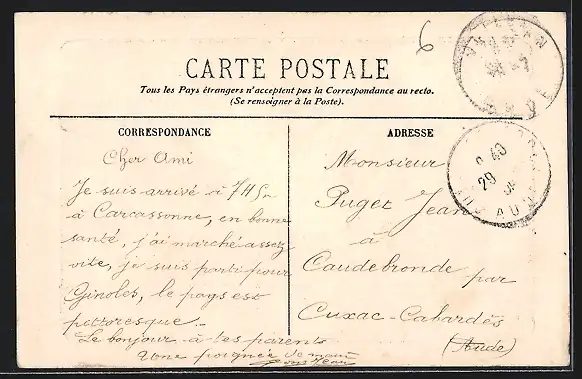 6
CARTE POSTALE
Tous les Pays étrangers n'acceptent pas la Correspondance au recto.
(Se renseigner à la Poste).
CORRESPONDANCE
Cher Ami
Je suis arrivé à 7H
à Carcassonne, en bonne
santé, j'ai marché assez
vite, je suis parti pour
Ginoles, le pays est
pittoresque.
Le bonjour à tes parents
Une poignée de main
ADRESSE
Monsieur
Puget Jean
à
Caudebronde par
Cuxac-Cabardès
(Aude)
AUDE